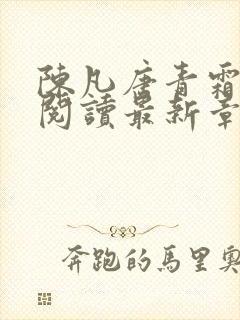 陳凡唐青霜
閱讀最新章
奔跑的馬里奧